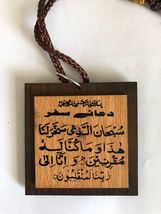 بسم الله الرحمن الرحيم
دعائے سفر
سُبْحَانَ الَّذِي سَخَّرَ لَنَا
هٰذَا وَمَا كُنَّا لَهُ
مُقْرِنِينَ وَإِنَّا إِلَىٰ
رَبِّنَا لَمُنْقَلِبُونَ